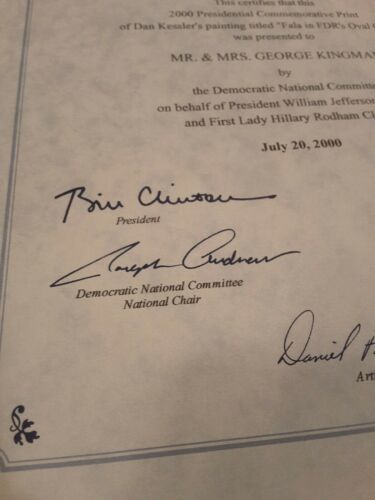 This certifies that this
2000 Presidential Commemorative Print
of Dan Kessler's painting titled "Fala in FDR's Oval
was presented to
MR. & MRS. GEORGE KINGMA
by
the Democratic National Committe
on behalf of President William Jefferso
and First Lady Hillary Rodham Cl
July 20, 2000
Bill Clinton
President
Joseph Andrew
Democratic National Committee
National Chair
Daniel
Art